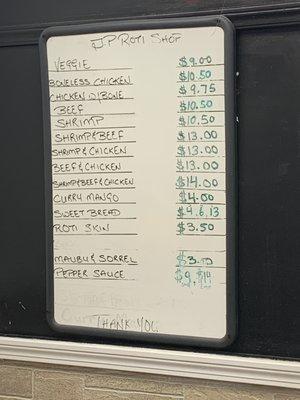 J.P ROTI SHOP
VEGGIE $9.00
BONELESS CHICKEN $10.50
CHICKEN W/BONE $9.75
BEEF $10.50
SHRIMP $10.50
SHRIMP&BEEF $13.00
SHRIMP & CHICKEN $13.00
BEEF & CHICKEN $13.00
SHRIMP&BEEF& CHICKEN $14.00
CURRY MANGO $4.00
SWEET BREAD $4.6.13
ROTI SKIN $3.50
MAUBY & SORREL
PEPPER SAUCE
THANK YOU